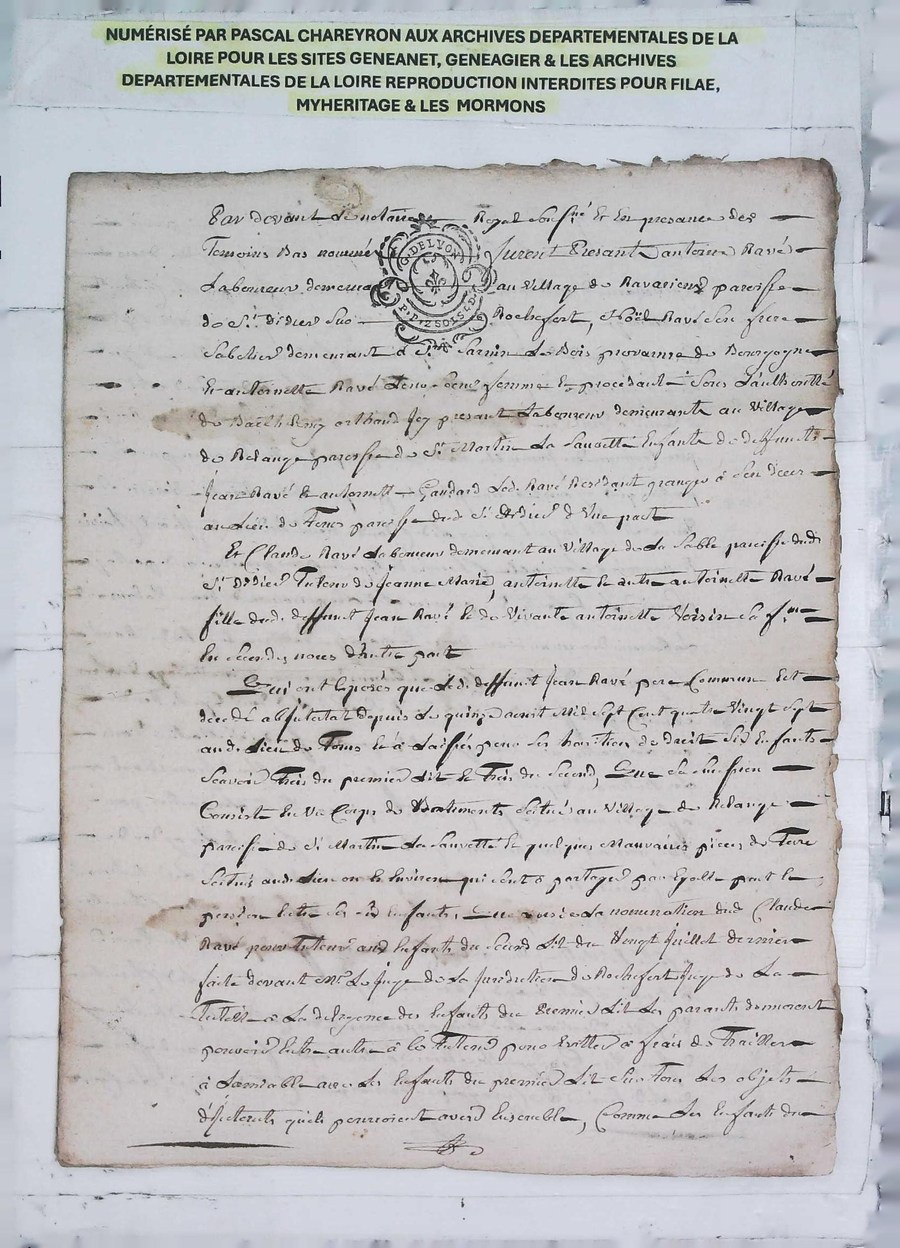 NUMÉRISÉ PAR PASCAL CHAREYRON AUX ARCHIVES DEPARTEMENTALES DE LA
LOIRE POUR LES SITES GENEANET, GENEAGIER & LES ARCHIVES
DEPARTEMENTALES DE LA LOIRE REPRODUCTION INTERDITES POUR FILAE,
MYHERITAGE & LES MORMONS
Par devant le notaire Royal soussigné Et En presance des
Temoins Bas nommés furent Presant antoine Ravé
G. DE LYON
P. P. 2 SOLS 4 D.
Laboureur demeurant au Village de paroisse
de St. didier Sur Rochefort, Noël Ravé son frere
Sabotier demeurant a St. Sernin du Bois province de Bourgogne
Et antoinette Ravé leur soeur femme Et procedant Sous L'authorité
de Barthelemy arthaud Icy presant Laboureur demeurants au Village
de Relange paroisse de St. Martin La Sauvetté Enfants de deffunts
Jean Ravé Et antoinett Gaudard Led. Ravé Residant granger a son deces
au Lieu de paroisse dud. St. didier d'Une part
Et Claude Ravé Laboureur demeurant au Village de La Sable paroisse dud.
St. didier Tuteur de Jeanne Marie, antoinette Et autre antoinette Ravé
filles dud. deffunt Jean Ravé Et de Vivante antoinette Voisin Sa fme
En secondes noces d'autre part
Lesquels ont Exposés que Led. deffunt Jean Ravé pere Commun Est
decedé abintestat depuis Le quinze aout Mil Sept Cent quatre Vingt Sept
aud. Lieu de Et a Laissés pour Ses heritiers de droit Six Enfants
Scavoir Trois du premier Lit Et Trois du Second, Que Sa
Consiste En Un Corps de Batiments Scitué au Village de Relange
paroisse de St. Martin La Sauvetté Et quelques Mauvaises pieces de Terre
Scitués aud. Lieu ou Es Environs qui sont a partager par Egalle part Et
portion Entre Les six Enfants, La nomination dud. Claude
Ravé pour Tuteur aux Enfants du Second Lit du Vingt Juillet dernier
faite devant Mr. Le Juge de La Juridiction de Rochefort Juge de La
Tutelle a La deligence des Enfants du Premier Lit Les parants donnerent
pouvoir Entre autre a les Tuteur pour Eviter a frais de Traitter
à Lamiable avec Les Enfants du premier Lit Sur Tous Les objets
differents quils pouroient avoir Ensemble, Comme Les Enfants du